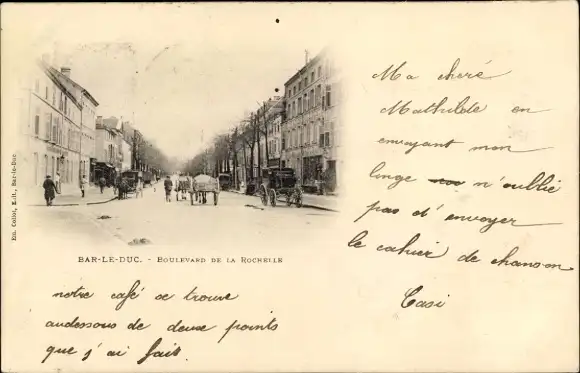 Ma cheré
Mathilde en
envoyant mon
longe n'oublié
pas d'envoyer
le cahier de chanson
Casi
Em. Collot, Edit., Bar-le-Duc
BAR-LE-DUC. - BOULEVARD DE LA ROCHELLE
notre café se trouve
audessous de deuse points
que j'ai fait.